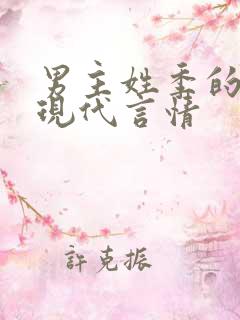 男主姓季的
现代言情
許克振